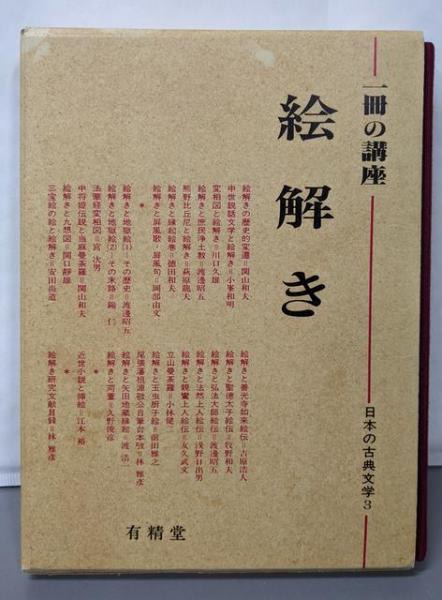 一冊の講座
絵解き
日本の古典文学3
絵解きの歴史的変遷=関山和夫
中世説話文学と絵解き=小峯和明
変相図と絵解き=川口久雄
絵解きと庶民浄土教=渡邊昭五
熊野比丘尼と絵解き=萩原龍夫
絵解きと縁起絵巻=徳田和夫
絵解きと屏風歌・屏風句=岡部由文
*
絵解きと地獄絵(1)その歴史=渡邊昭五
絵解きと地獄絵(2)その末路=錦 仁
法華経変相図=宮 次男
中将姫伝説と当麻曼荼羅=関山和夫
絵解きと九想図=関口靜雄
三宝絵の絵と絵解き=安田尚道
絵解きと善光寺如来絵伝=吉原浩人
絵解きと聖徳太子絵伝=牧野和夫
絵解きと弘法大師絵伝=渡邊昭五
絵解きと法然上人絵伝=浅野日出男
絵解きと親鸞上人絵伝=友久武文
立山曼荼羅=小林健二
絵解きと玉虫厨子絵=前田雅之
尾張藩祖源敬公自筆台本攷=林 雅彦
絵解きと矢田地蔵縁起=渡 浩一
絵解きと苅萱=久野俊彦
*
近世小説と挿絵=江本 裕
*
絵解き研究文献目録=林 雅彦
有精堂